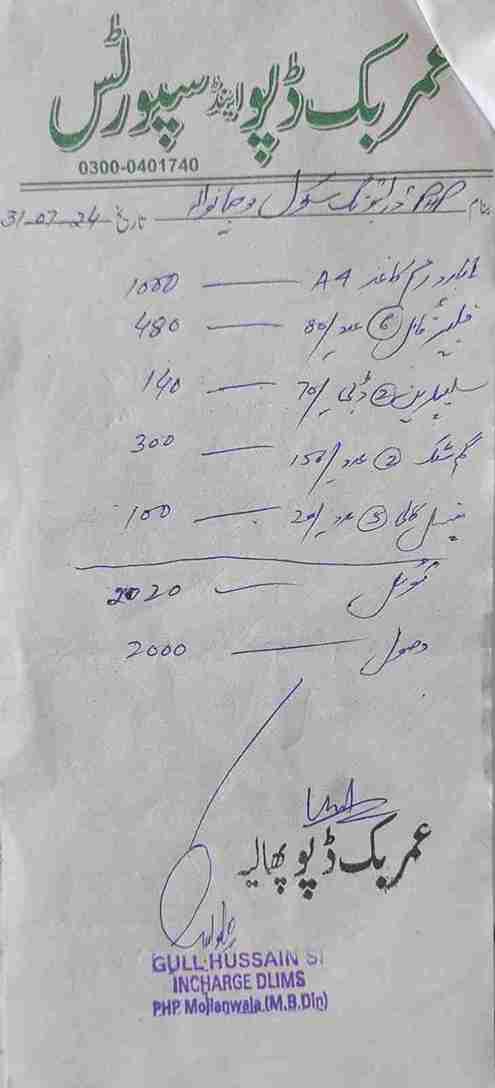 عمر بک ڈپو اینڈ سپورٹس
0300-0401740
بنام PHP ڈرائیونگ سکول تاریخ 31-07-24
رم کاغذ A4 — 1000
فائل 6 عدد /80 — 480
2 ڈبی /70 — 140
گم سٹک 2 عدد /150 — 300
پنسل 5 عدد /20 — 100
ٹوٹل — 2020
وصول — 2000
عمر بک ڈپو پھالیہ
GULL HUSSAIN SI
INCHARGE DLIMS
PHP Mojianwala.(M.B.Din)